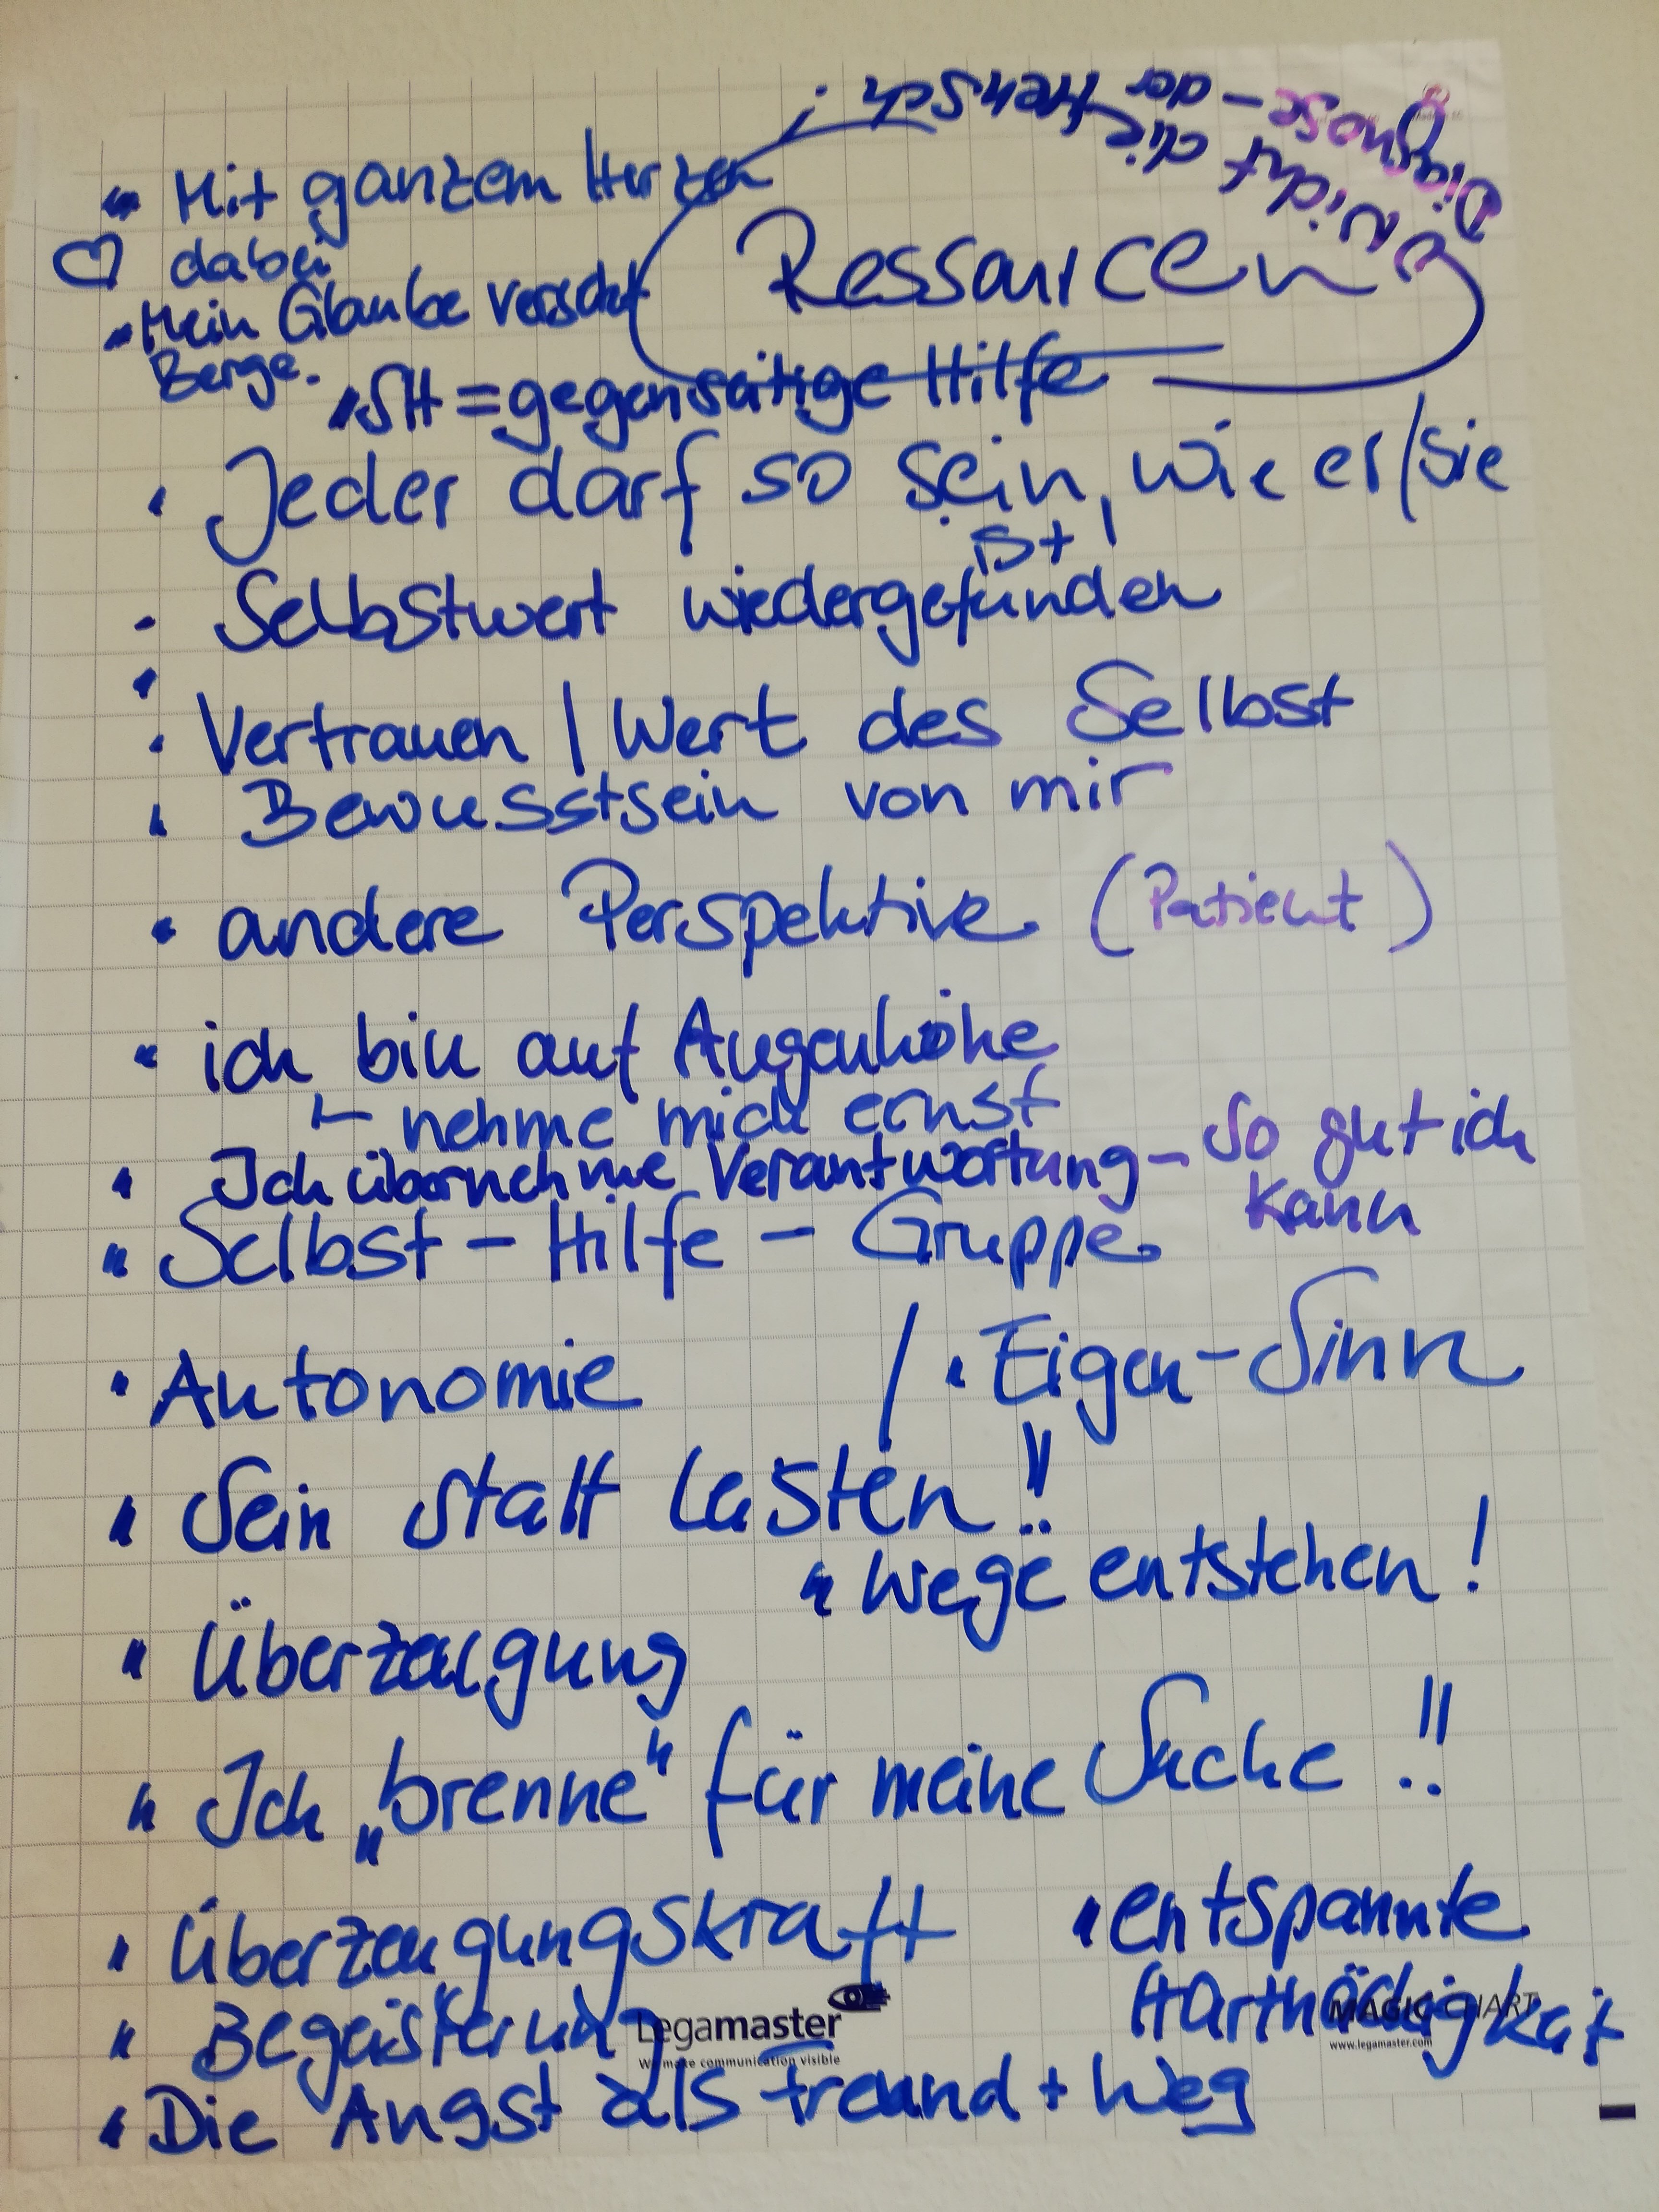 Nicht die
Diagnose - der Mensch!
Ressourcen
" Mit ganzem Herzen
♡ dabei
" Mein Glaube versetzt
Berge.
" SH = gegenseitige Hilfe
• Jeder darf so sein, wie er/sie
ist!
- Selbstwert wiedergefunden
• Vertrauen / Wert des Selbst
• Bewusstsein von mir
• andere Perspektive (Patient)
• ich bin auf Augenhöhe
nehme mich ernst
• Ich übernehme Verantwortung - so gut ich
kann
" Selbst - Hilfe - Gruppe
• Autonomie / • Eigen-Sinn
" Sein statt Lasten!!
" Wege entstehen!
" Überzeugung
" Ich „brenne“ für meine Sache!!
" Überzeugungskraft
" entspannte
Hartnäckigkeit
" Begeisterung
Legamaster
We make communication visible
MAGIC CHART
www.legamaster.com
" Die Angst als Freund + Weg